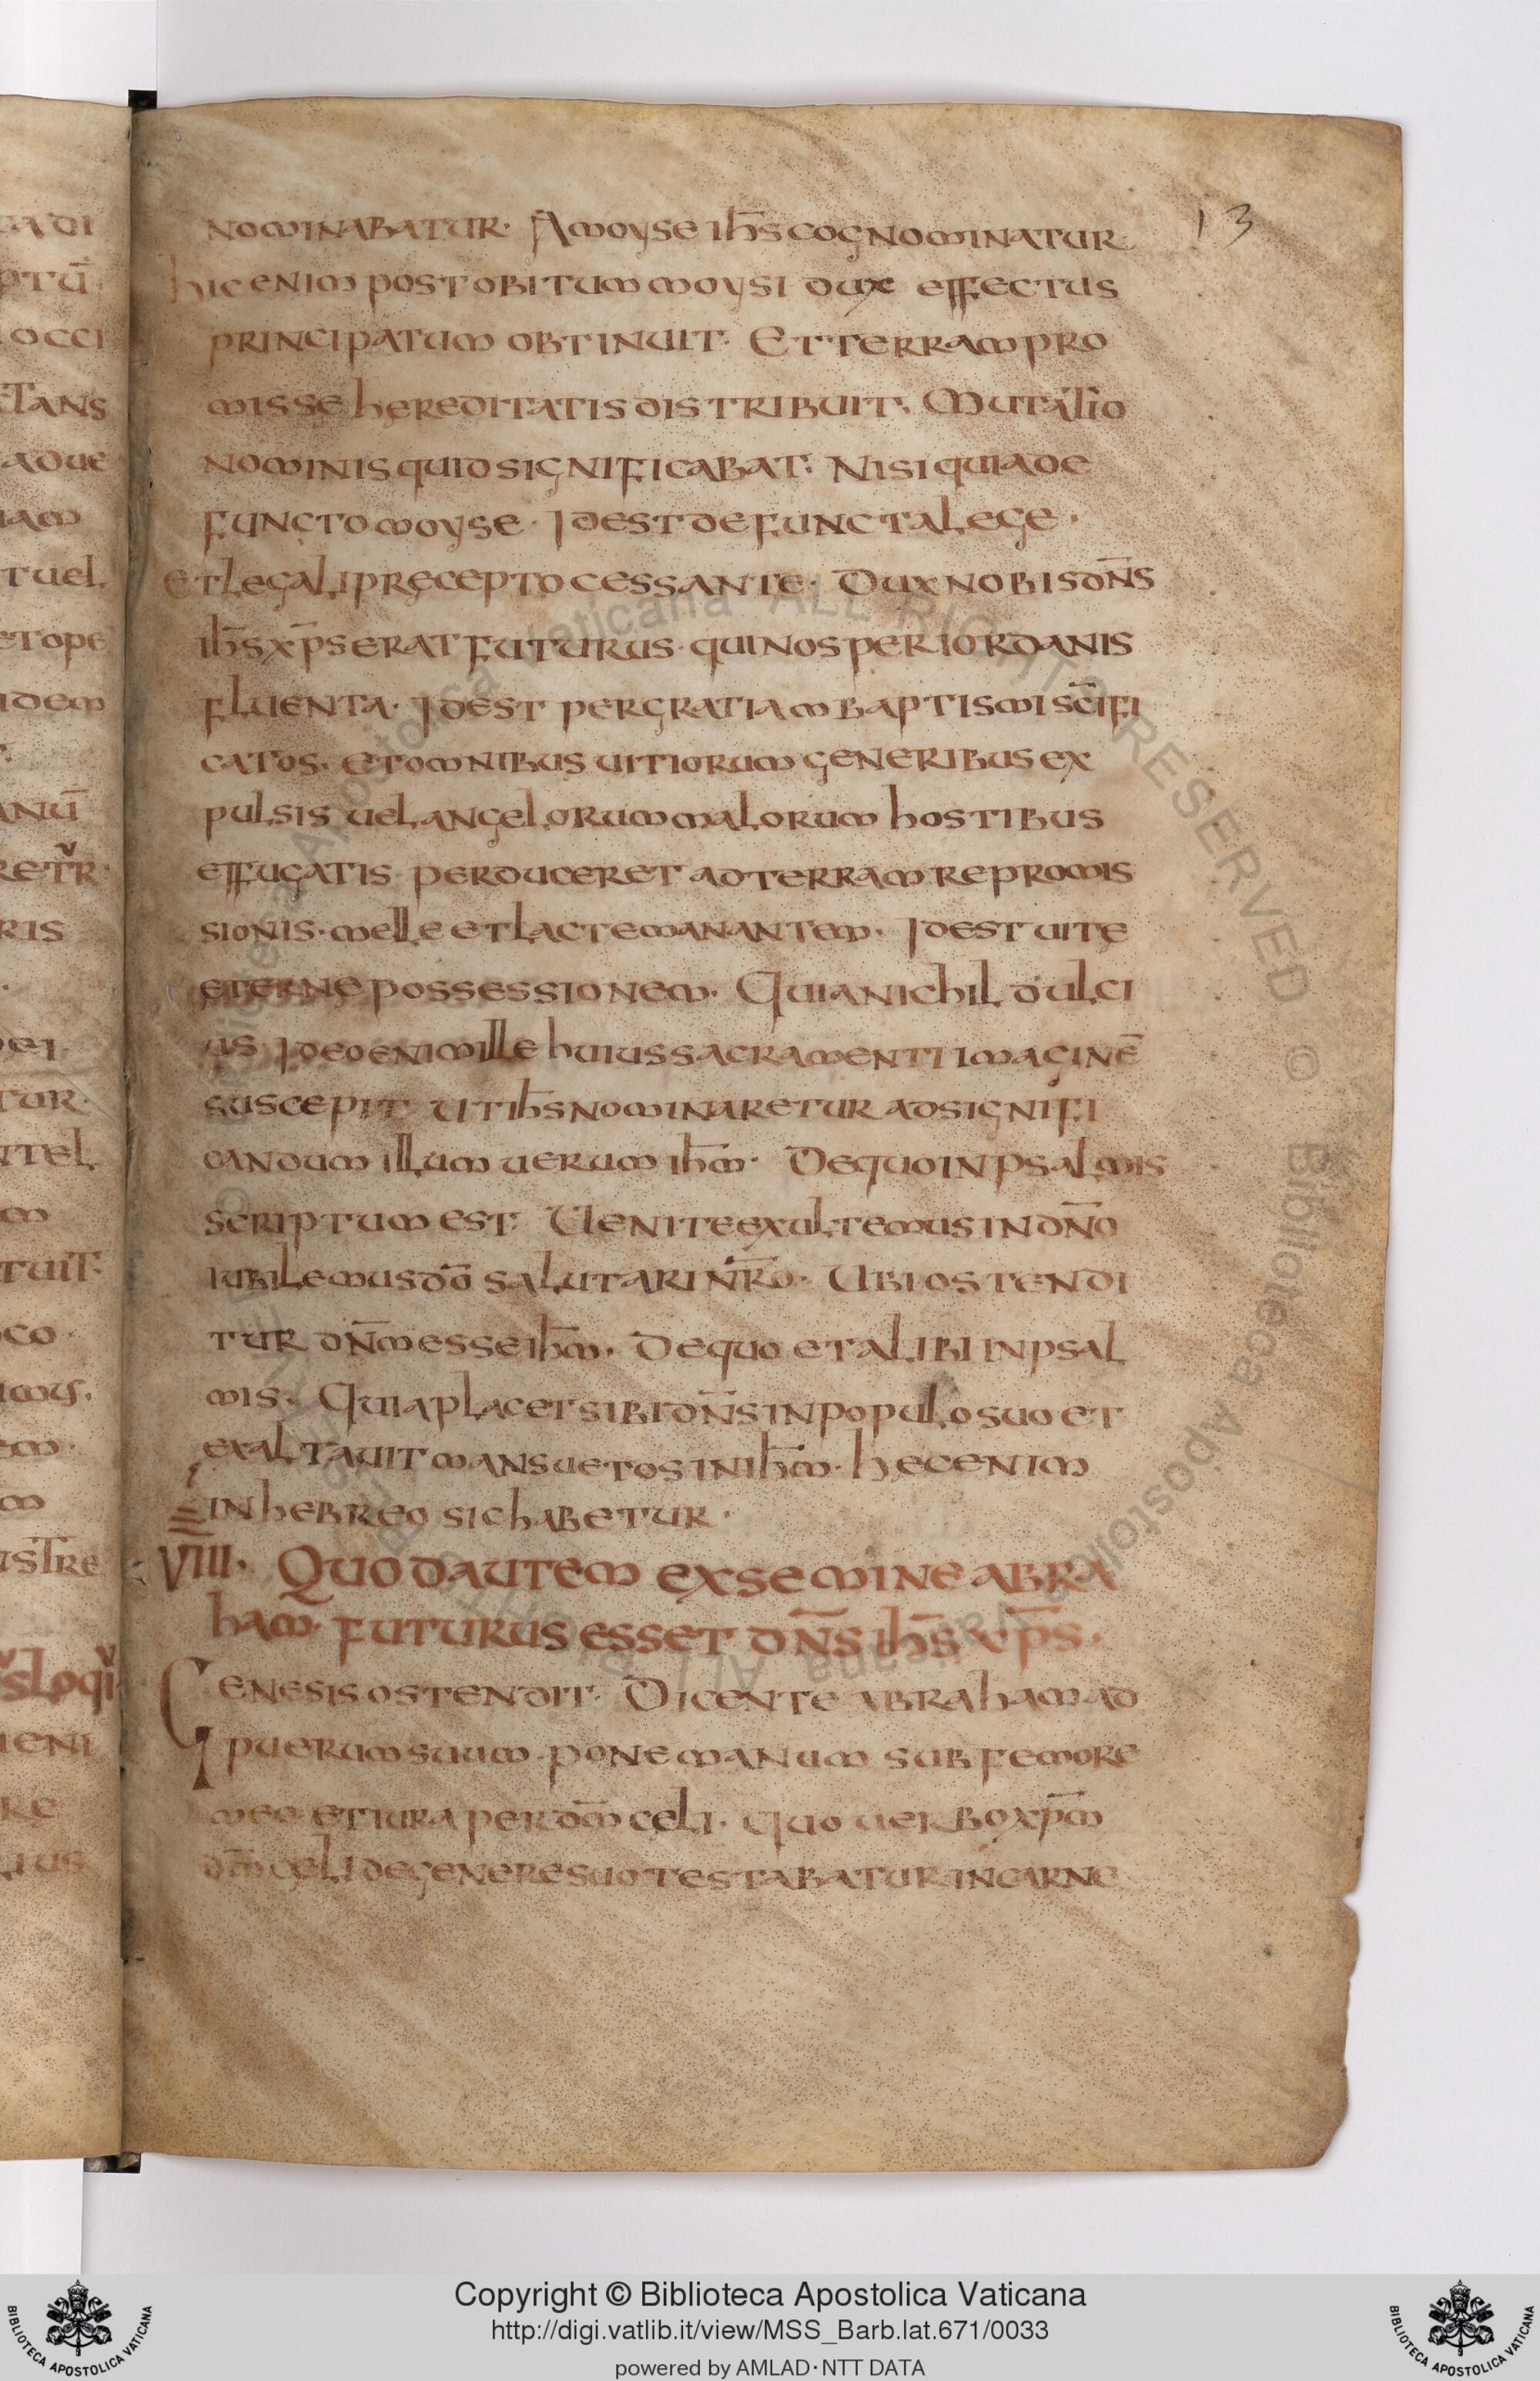 13
nominabatur· Amoyse ih̅s cognominatur
hic enim post obitum moysi dux effectus
principatum obtinuit· Et terram pro
misse hereditatis distribuit; Mutatio
nominis quid significabat; Nisi quia de
functo moyse· Idest defuncta lege·
et legali precepto cessante· Dux nobis dn̅s
ih̅s xp̅s erat futurus· qui nos per iordanis
fluenta· Idest per gratiam baptismi sc̅ifi
catos· et omnibus uitiorum generibus ex
pulsis uel angelorum malorum hostibus
effugatis perduceret ad terram repromis
sionis· melle et lacte manantem· Idest uitę
ęternę possessionem· Quia nichil dulci
us Ideo enim ille huius sacramenti imagine̅
suscepit Ut ih̅s nominaretur ad signifi
candum illum uerum ih̅m· De quo in psalmis
scriptum est; Uenite exultemus in dn̅o
iubilemus do̅ salutari nr̅o· Ubi ostendi
tur dn̅m esse ih̅m· De quo et alibi in psal
mis· Quia placet sibi dn̅s in populo suo et
exaltauit mansuetos in ih̅m· hęc enim
in hebreo sic habetur·
VIIII· Quod autem ex semine abra
ham· futurus esset dn̅s ih̅s xp̅s·
Genesis ostendit· Dicente abraham ad
puerum suum· pone manum sub femore
meo et iura per dm̅ cęli· quo uerbo xp̅m
dm̅ cęli de genere suo testabatur in carne
Copyright © Biblioteca Apostolica Vaticana
http://digi.vatlib.it/view/MSS_Barb.lat.671/0033
powered by AMLAD·NTT DATA